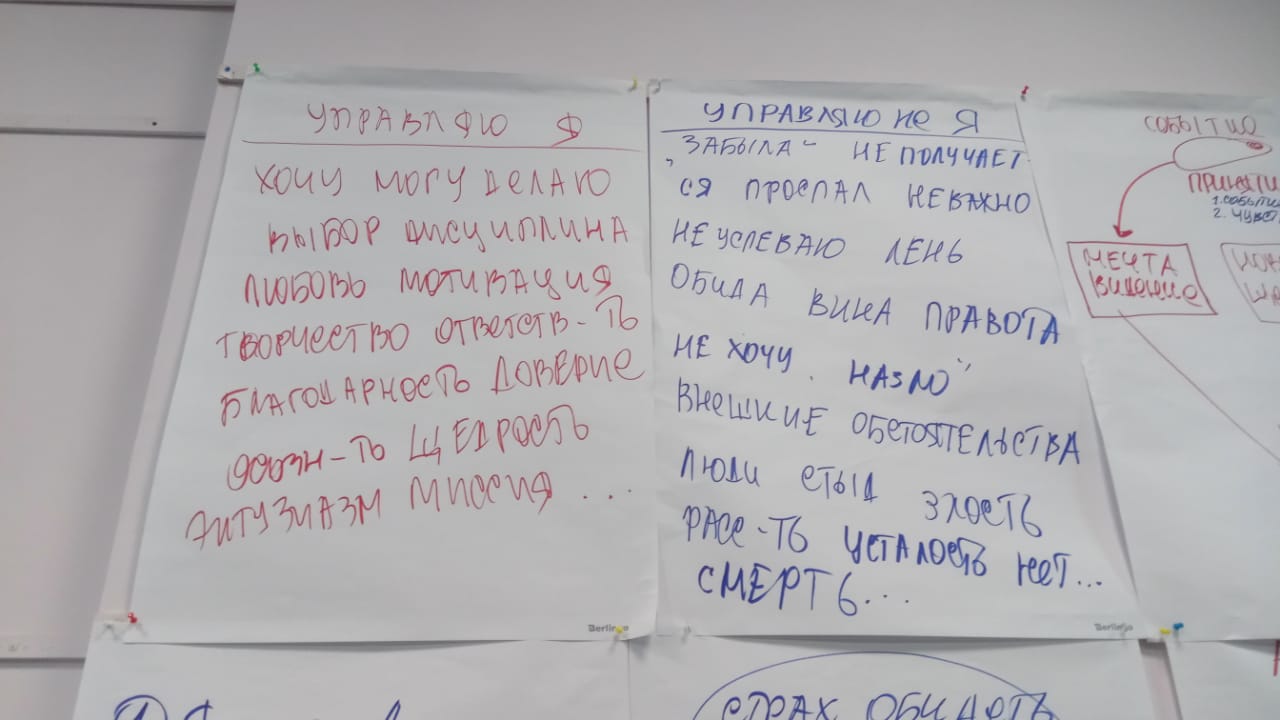 УПРАВЛЯЮ Я
ХОЧУ МОГУ ДЕЛАЮ
ВЫБОР ДИСЦИПЛИНА
ЛЮБОВЬ МОТИВАЦИЯ
ТВОРЧЕСТВО ОТВЕТСТВ-ТЬ
БЛАГОДАРНОСТЬ ДОВЕРИЕ
ОСОЗН-ТЬ ЩЕДРОСТЬ
ЭНТУЗИАЗМ МИССИЯ ...
Berlingo
УПРАВЛЯЮ НЕ Я
„ЗАБЫЛА- НЕ ПОЛУЧАЕТ
СЯ ПРОСПАЛ НЕВАЖНО
НЕ УСПЕВАЮ ЛЕНЬ
ОБИДА ВИНА ПРАВОТА
НЕ ХОЧУ. НАЗЛО"
ВНЕШНИЕ ОБСТОЯТЕЛЬСТВА
ЛЮДИ СТЫД ЗЛОСТЬ
РАСС-ТЬ УСТАЛОСТЬ НЕТ...
СМЕРТЬ...
Berlingo
СОБЫТИЕ
ПРИНЯТИ
1. СОБЫТИ
2. ЧУВСТ
МЕЧТА
ВИДЕНИЕ
СТРАХ ОБИДЕТЬ